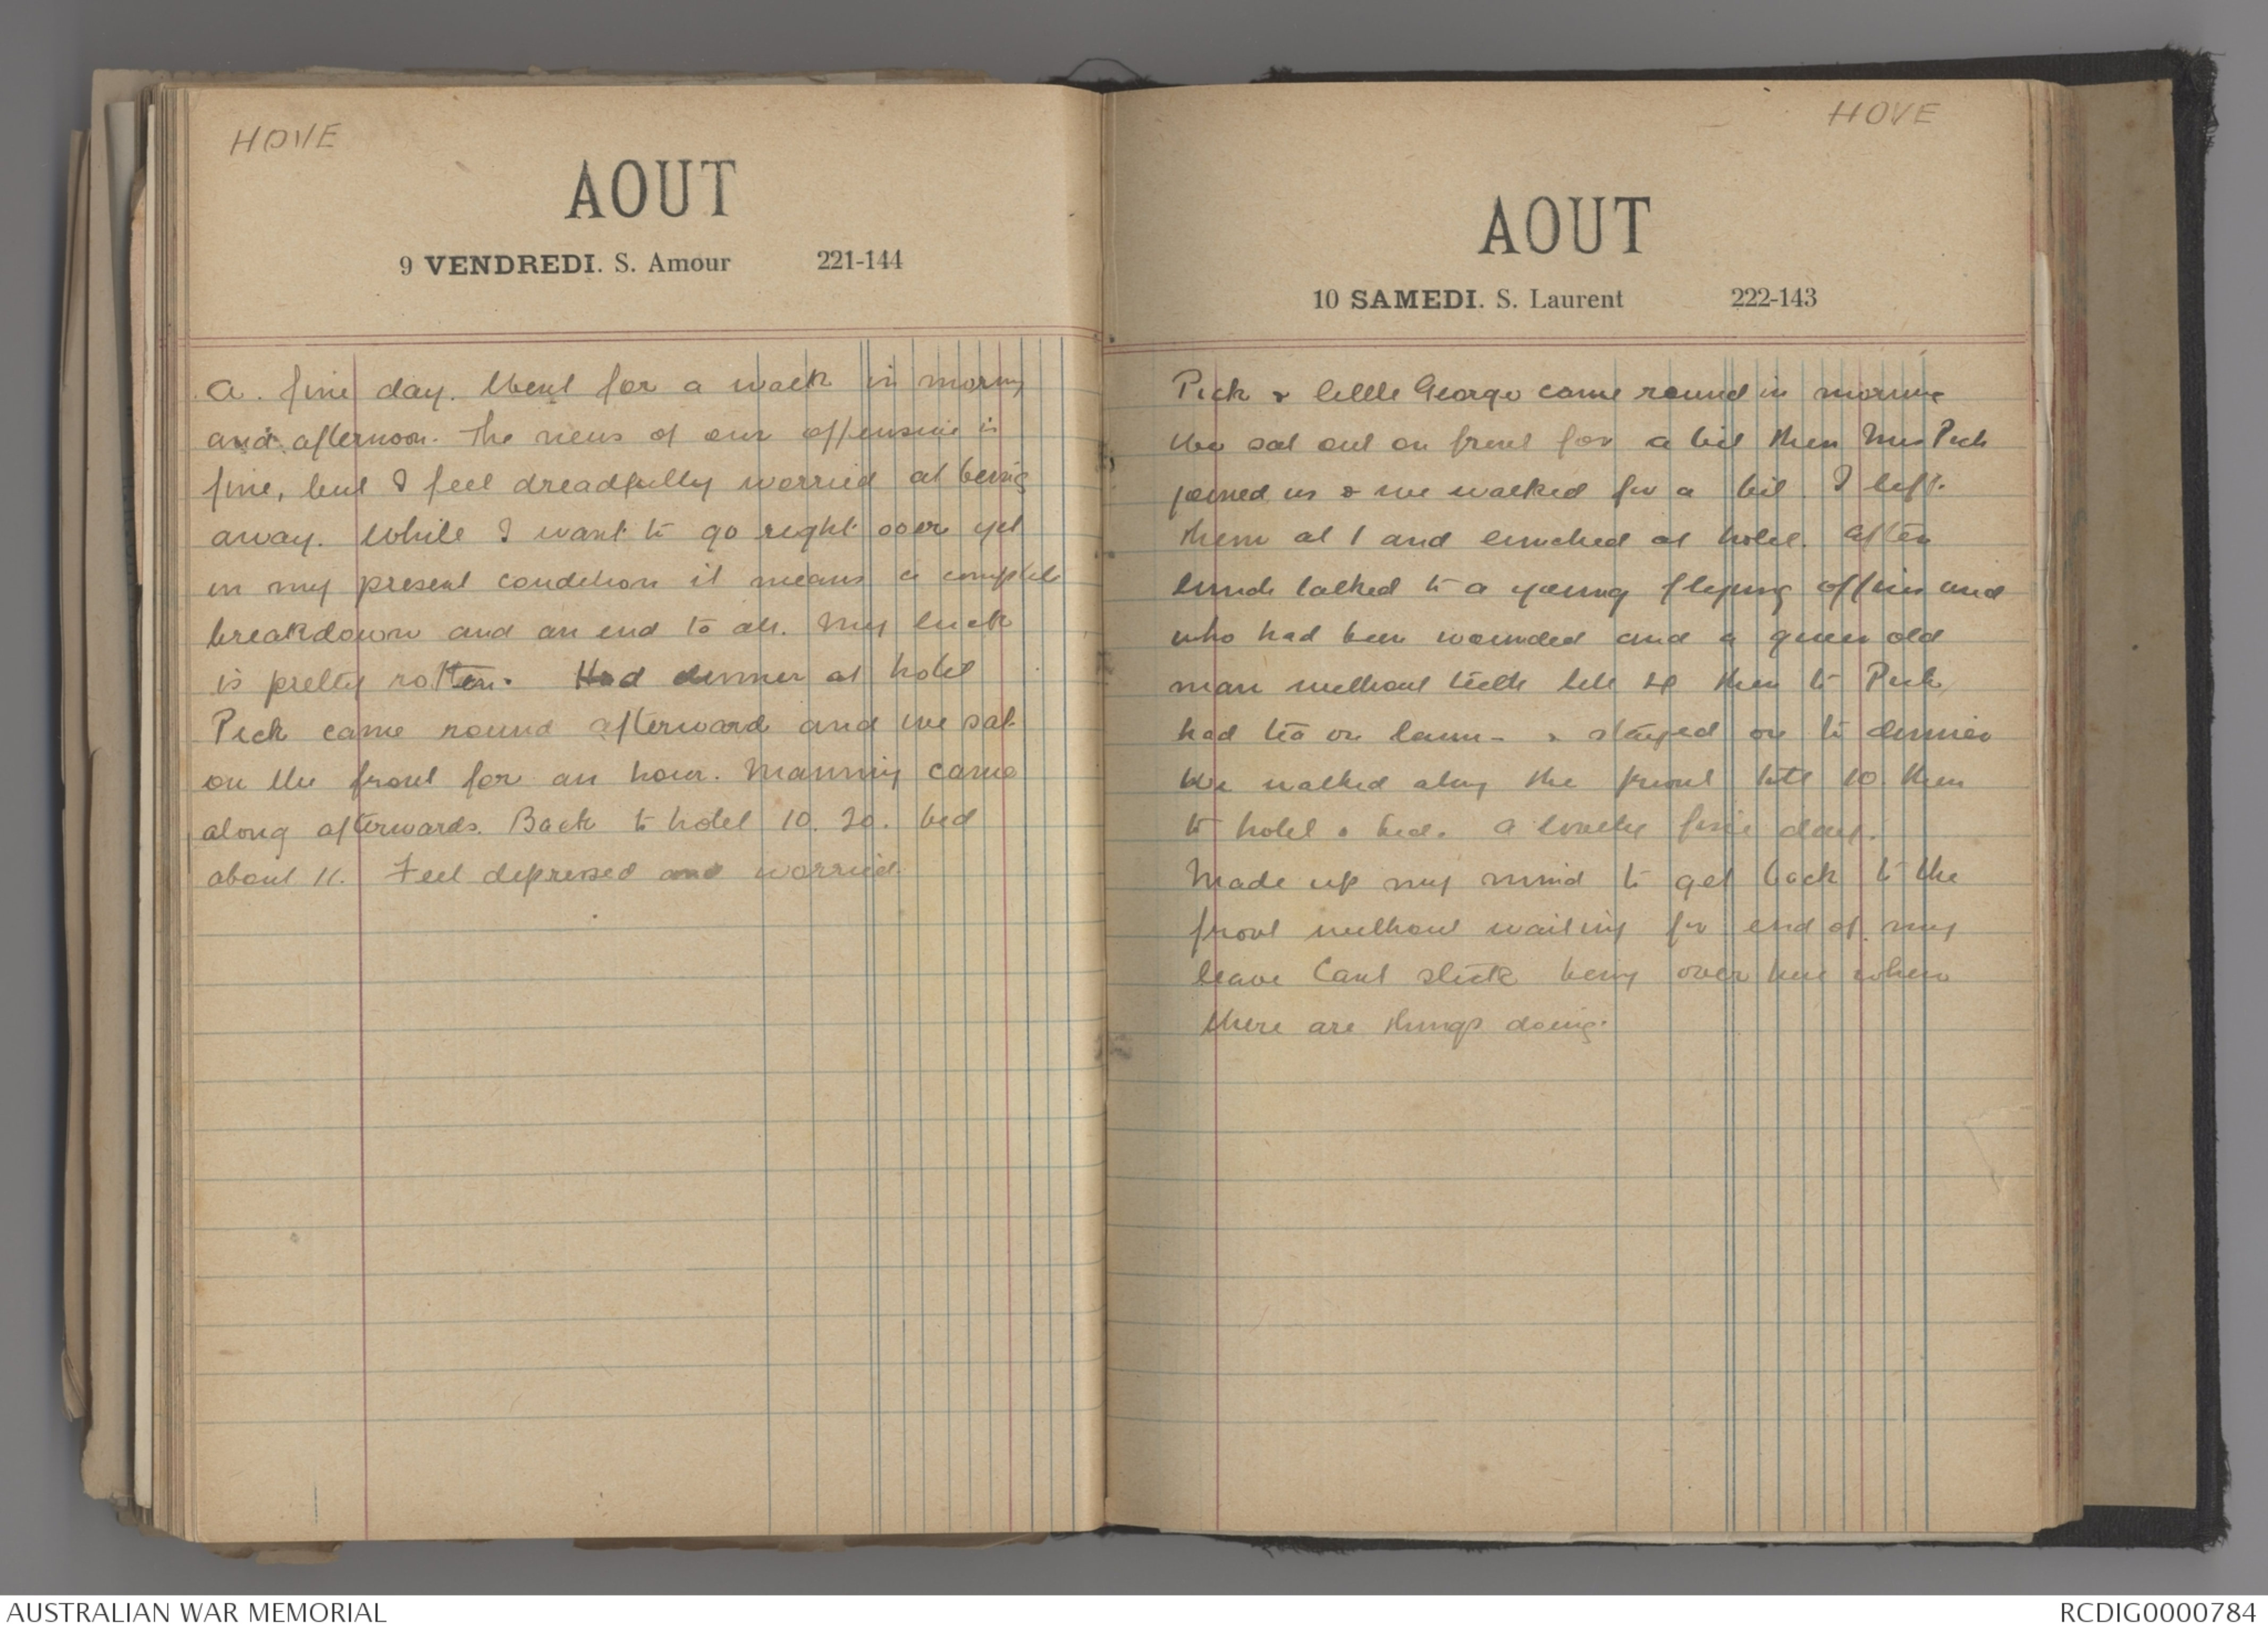 HOVE
AOUT
9 VENDREDI. S. Amour 221-144
A. fine day. Went for a walk in morning
and afternoon. The news of our offensive is
fine, but I feel dreadfully worried at being
away. While I want to go right over yet
in my present condition it means a complete
breakdown and an end to all. My luck
is pretty rotten. Had dinner at hotel
Peck came round afterward and we sat
on the front for an hour. Manning came
along afterwards. Back to hotel 10.30. bed
about 11. Feel depressed and worried.
HOVE
AOUT
10 SAMEDI. S. Laurent 222-143
Peck & little George came round in morning
We sat out on front for a bit then Mrs Peck
joined us & we walked for a bit. I left
them at 1 and lunched at hotel. After
lunch talked to a young flying officer and
who had been wounded and a queer old
man without teeth till then to Peck
had tea on lawn - & stayed on to dinner
We walked along the front till 10. then
to hotel & bed. A lovely fine day.
Made up my mind to get back to the
front without waiting for end of my
leave Cant stick being over here when
there are things doing.
AUSTRALIAN WAR MEMORIAL
RCDIG0000784